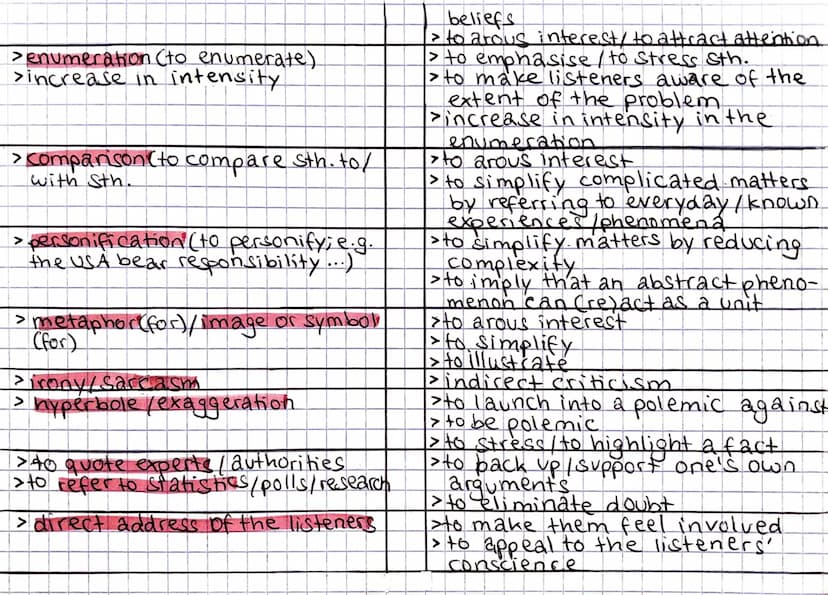 beliefs
> to arous interest/to attract attention
> enumeration (to enumerate)
> increase in intensity
> to emphasise/to stress sth.
> to make listeners aware of the
extent of the problem
> increase in intensity in the
enumeration
> comparison (to compare sth. to/
with sth.
> to arous interest
> to simplify complicated matters
by referring to everyday/known
experiences/phenomena
> personification (to personify; e.g.
the USA bear responsibility ...)
> to simplify matters by reducing
complexity
> to imply that an abstract pheno-
menon can (re)act as a unit
> metaphor (for)/image or symbol
(for)
> to arous interest
> to simplify
> to illustrate
> irony/sarcasm
> hyperbole/exaggeration
> indirect criticism
> to launch into a polemic against
> to be polemic
> to stress/to highlight a fact
> to quote experts/authorities
> to refer to statistics/polls/research
> to back up/support one's own
arguments
> to eliminate doubt
> direct address of the listeners
> to make them feel involved
> to appeal to the listeners'
conscience